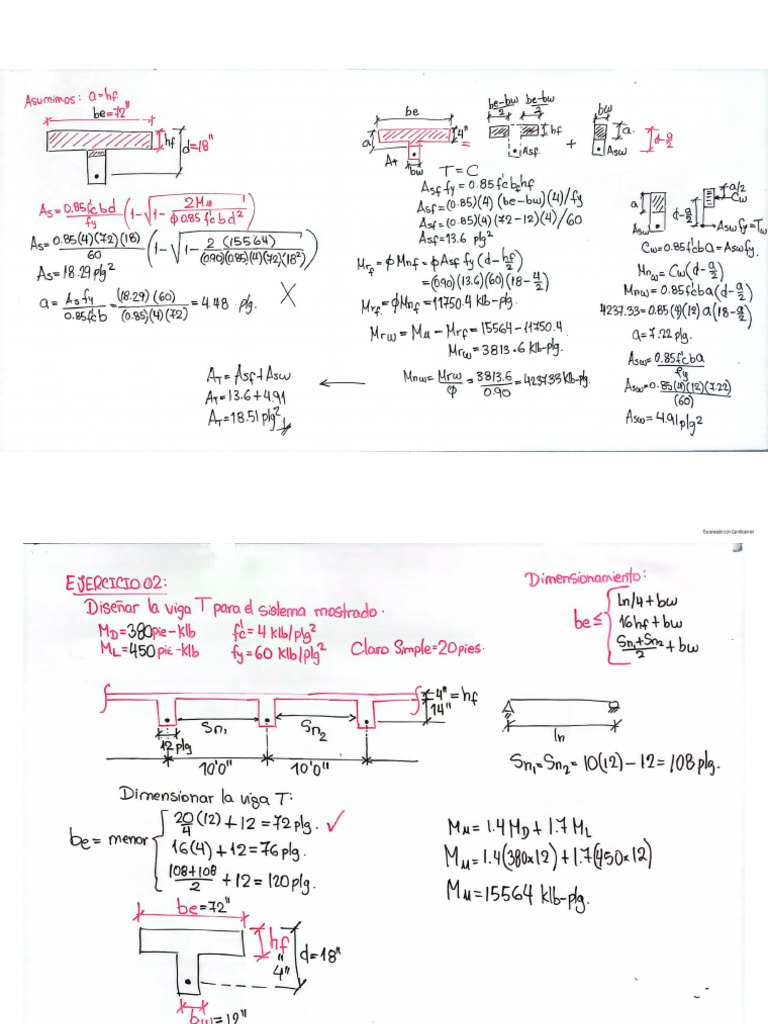 Asumimos: a=hf
be=72"
hf
d=18"
As=0.85f'cbd/fy (1-√(1-2Mu/(φ0.85f'cbd²)))
As=0.85(4)(72)(18)/60 (1-√(1-2(15564)/((0.90)(0.85)(4)(72)(18²))))
As=18.29plg²
a=Asfy/0.85f'cb=(18.29)(60)/(0.85)(4)(72)=4.48 plg. X
AT=Asf+Asw
AT=13.6+4.91
AT=18.51plg²
be
a
4"=
bw
be-bw/2
be-bw/2
hf
Asf
+
bw
a
Asw
d-a/2
T=C
Asf fy=0.85f'cbhf
Asf=(0.85)(4)(be-bw)(4)/fy
Asf=(0.85)(4)(72-12)(4)/60
Asf=13.6 plg²
Mrf=φMnf=φAsf fy(d-hf/2)
=(0.90)(13.6)(60)(18-4/2)
Mrf=φMnf=11750.4 klb-plg.
Mrw=Mu-Mrf=15564-11750.4
Mrw=3813.6 klb-plg.
Mnw=Mrw/φ=3813.6/0.90=4237.33klb-plg.
a
Asw
d-a/2
a/2
Cw
Aswfy=Tw
Cw=0.85f'cba=Aswfy.
Mnw=Cw(d-a/2)
Mnw=0.85f'cba(d-a/2)
4237.33=0.85(4)(12)a(18-a/2)
a=7.22 plg.
Asw=0.85f'cba/fy
Asw=0.85(4)(12)(7.22)/(60)
Asw=4.91plg²
Escaneado con CamScanner
EJERCICIO 02:
Diseñar la viga T para el sistema mostrado.
MD=380pie-klb f'c=4 klb/plg²
ML=450pie-klb fy=60 klb/plg² Claro Simple=20pies.
Dimensionamiento:
be≤
ln/4+bw
16hf+bw
Sn1+Sn2/2+bw
4"=hf
14"
Sn1
Sn2
12plg
10'0"
10'0"
ln
Sn1=Sn2=10(12)-12=108plg.
Dimensionar la viga T:
be=menor
20/4(12)+12=72plg. ✓
16(4)+12=76plg.
108+108/2+12=120plg.
Mu=1.4MD+1.7ML
Mu=1.4(380x12)+1.7(450x12)
Mu=15564 klb-plg.
be=72"
hf
"
4"
d=18"
bw=12"